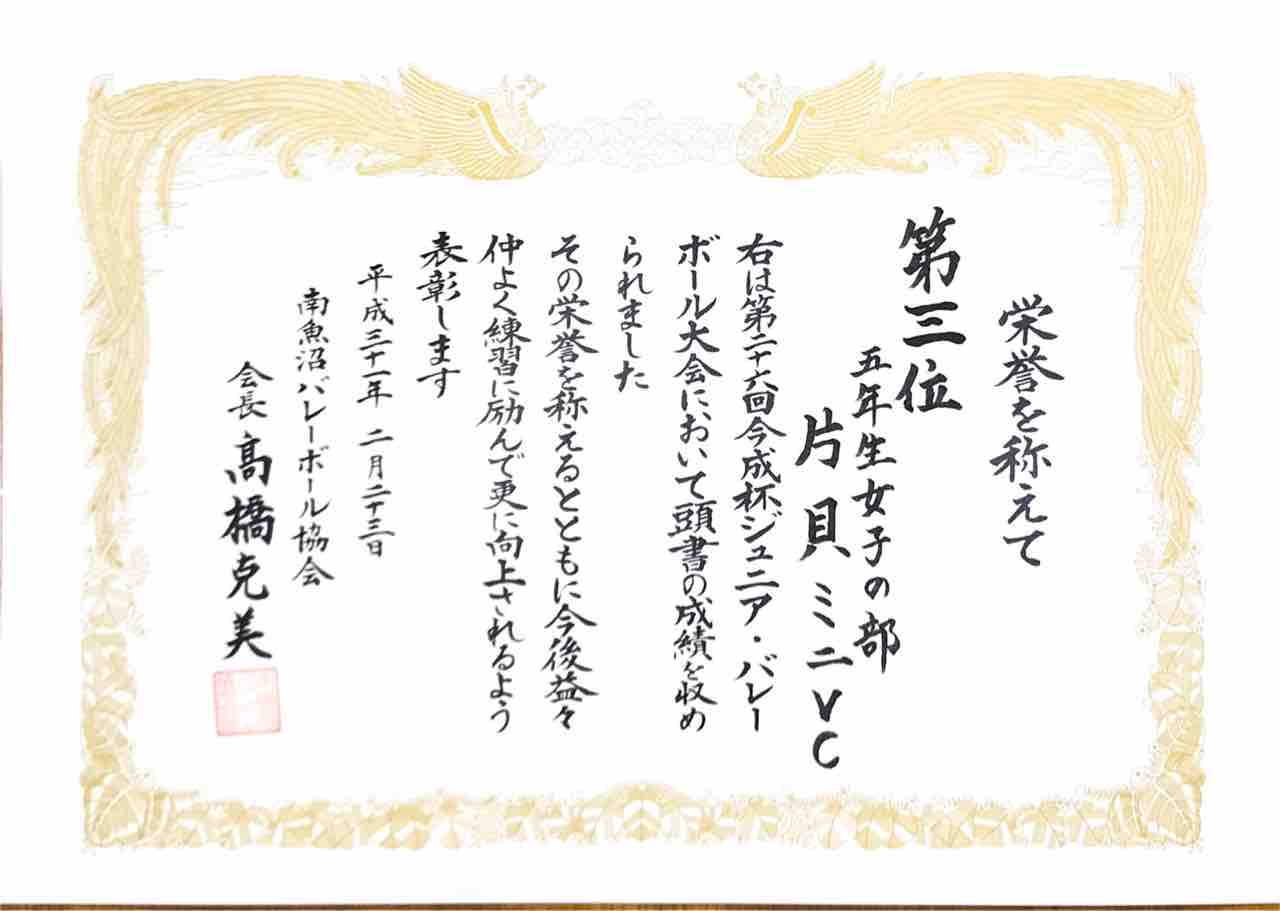 栄誉を称えて
第三位
五年生女子の部
片貝ミニVC
右は第二十六回今成杯ジュニア・バレー
ボール大会において頭書の成績を収め
られました
その栄誉を称えるとともに今後益々
仲よく練習に励んで更に向上されるよう
表彰します
平成三十一年 二月二十三日
南魚沼バレーボール協会
会長 髙橋克美